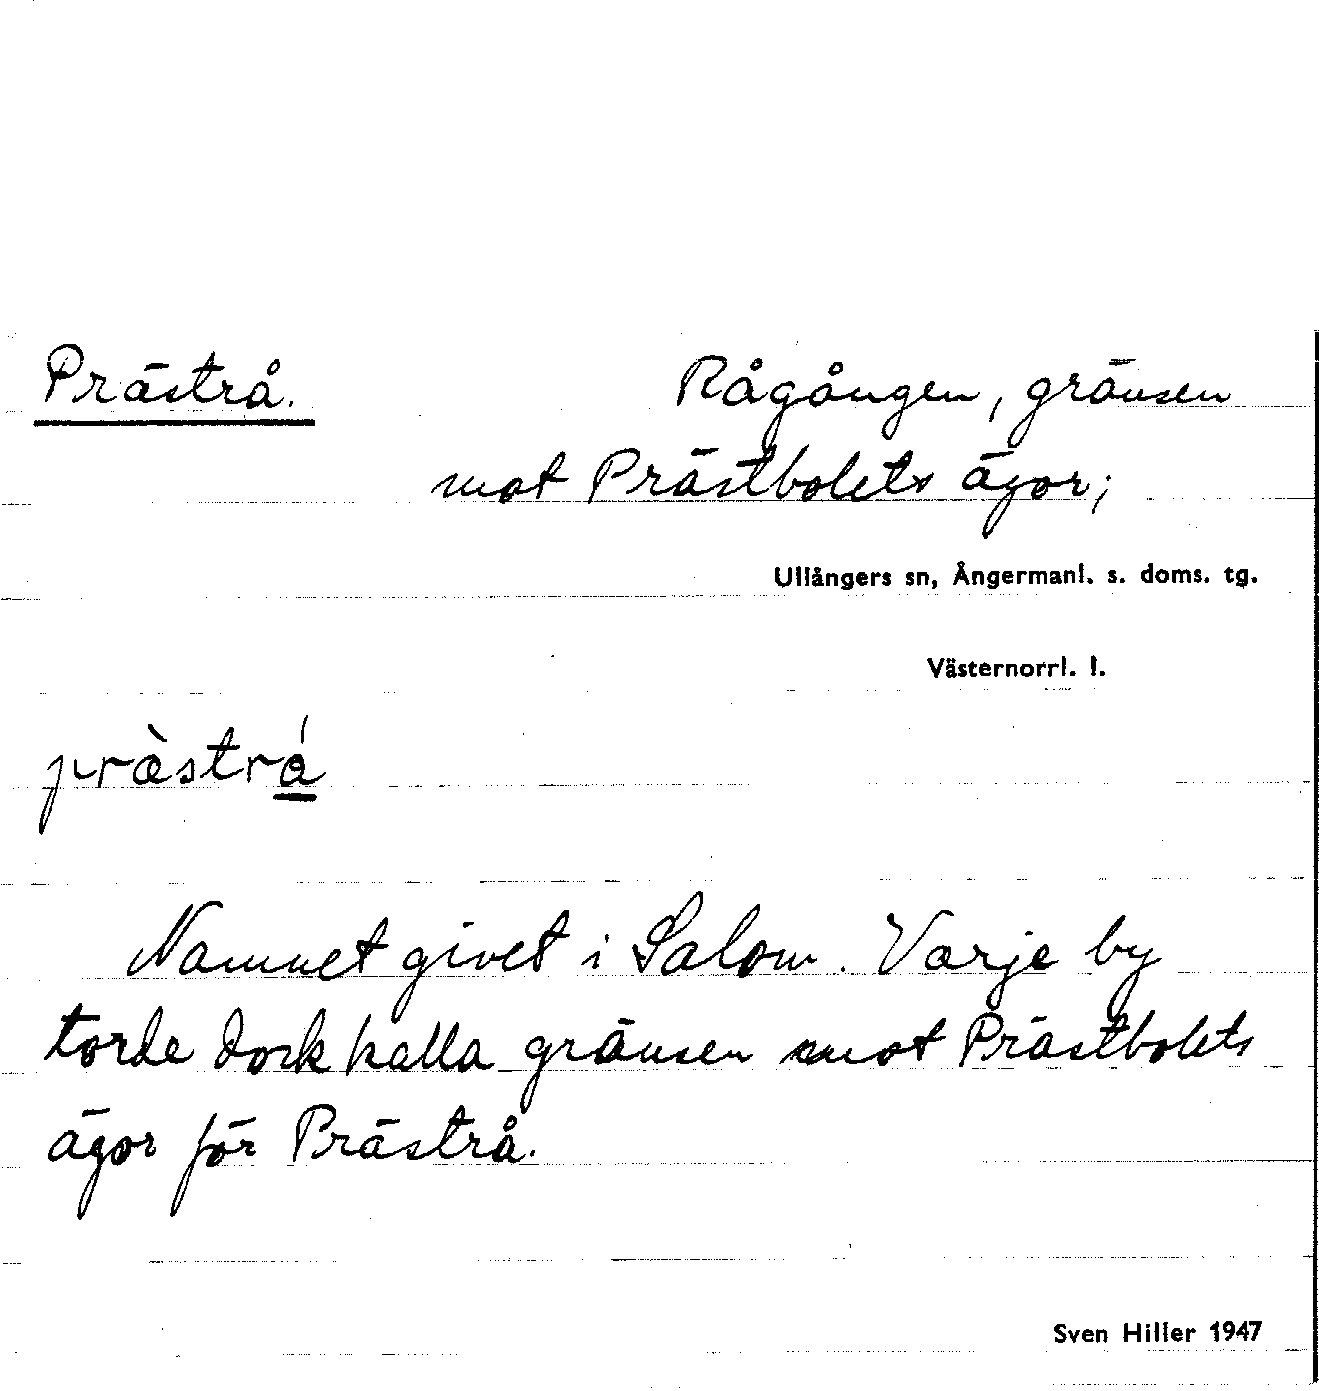 Prästrå. Rågången, gränsen
mot Prästbolets ägor;
Ullångers sn, Ångermanl. s. doms. tg.
Västernorrl. l.
præ̀strá̱
Namnet givet i Salom. Varje by
torde dock kalla gränsen mot Prästbolets
ägor för Prästrå.
Sven Hiller 1947